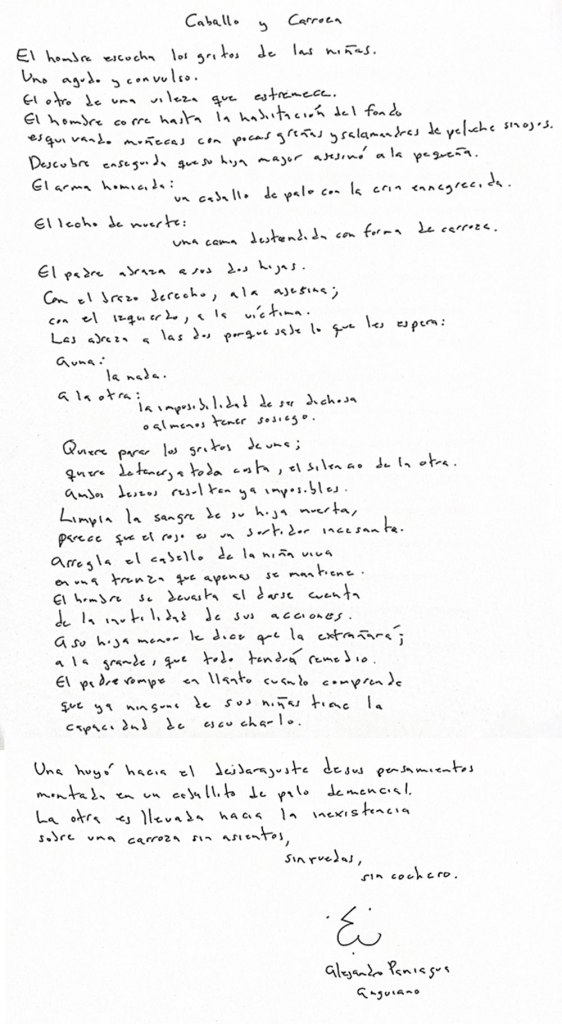 Caballo y Carroza
El hombre escucha los gritos de las niñas.
Uno agudo y convulso.
El otro de una vileza que estremece.
El hombre corre hasta la habitación del fondo
esquivando moñecas con pocas greñas y salamandras de peluche sin ojos.
Descubre enseguida que su hija mayor asesinó a la pequeña.
El arma homicida:
un caballo de palo con la crin ennegrecida.
El lecho de muerte:
una cama destendida con forma de carroza.
El padre abraza a sus dos hijas.
Con el brazo derecho, a la asesina;
con el izquierdo, a la víctima.
Las abraza a las dos porque sabe lo que les espera:
a una:
la nada.
a la otra:
la imposibilidad de ser dichosa
o al menos tener sosiego.
Quiere parar los gritos de una;
quiere detener, a toda costa, el silencio de la otra.
Ambos deseos resultan ya imposibles.
Limpia la sangre de su hija muerta,
parece que el rojo es un surtidor incesante.
Arregla el cabello de la niña viva
en una trenza que apenas se mantiene.
El hombre se devasta al darse cuenta
de la inutilidad de sus acciones.
A su hija menor le dice que la extrañará;
a la grande, que todo tendrá remedio.
El padre rompe en llanto cuando comprende
que ya ninguna de sus niñas tiene la
capacidad de escucharlo.
Una huyó hacia el desbarajuste de sus pensamientos
montada en un caballito de palo demencial.
La otra es llevada hacia la inexistencia
sobre una carroza sin asientos,
sin ruedas,
sin cochero.
Alejandro Paniagua
Anguiano